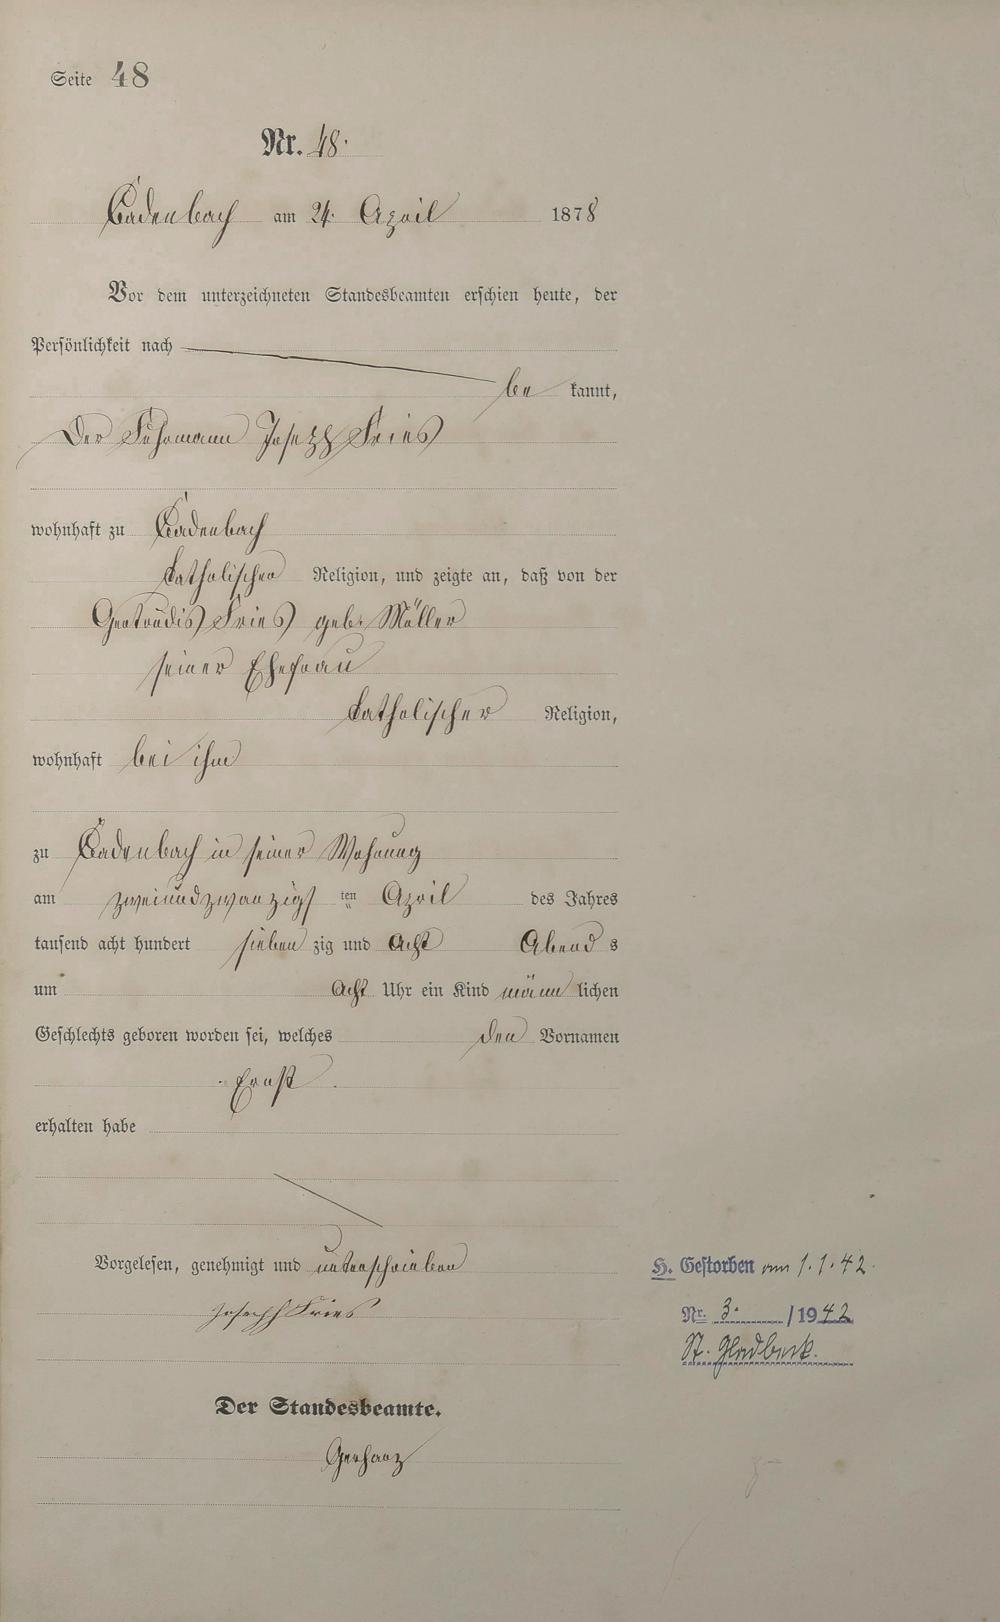 Seite 48
Nr. 48.
Cadenbach am 24. April 1878
Vor dem unterzeichneten Standesbeamten erschien heute, der
Persönlichkeit nach
be kannt,
der Fuhrmann Joseph Fries
wohnhaft zu Cadenbach
katholischer Religion, und zeigte an, daß von der
Gertrudis Fries geb. Müller
seiner Ehefrau
katholischer Religion,
wohnhaft bei ihm
zu Cadenbach in seiner Wohnung
am zweiundzwanzigs ten April des Jahres
tausend acht hundert sieben zig und acht Abend s
um acht Uhr ein Kind männ lichen
Geschlechts geboren worden sei, welches den Vornamen
Ernst
erhalten habe
Vorgelesen, genehmigt und unterschrieben
Joseph Fries
Der Standesbeamte.
Gerharz
H. Gestorben am 1.1.42.
Nr. 3. /1942
St. Gladbeck.